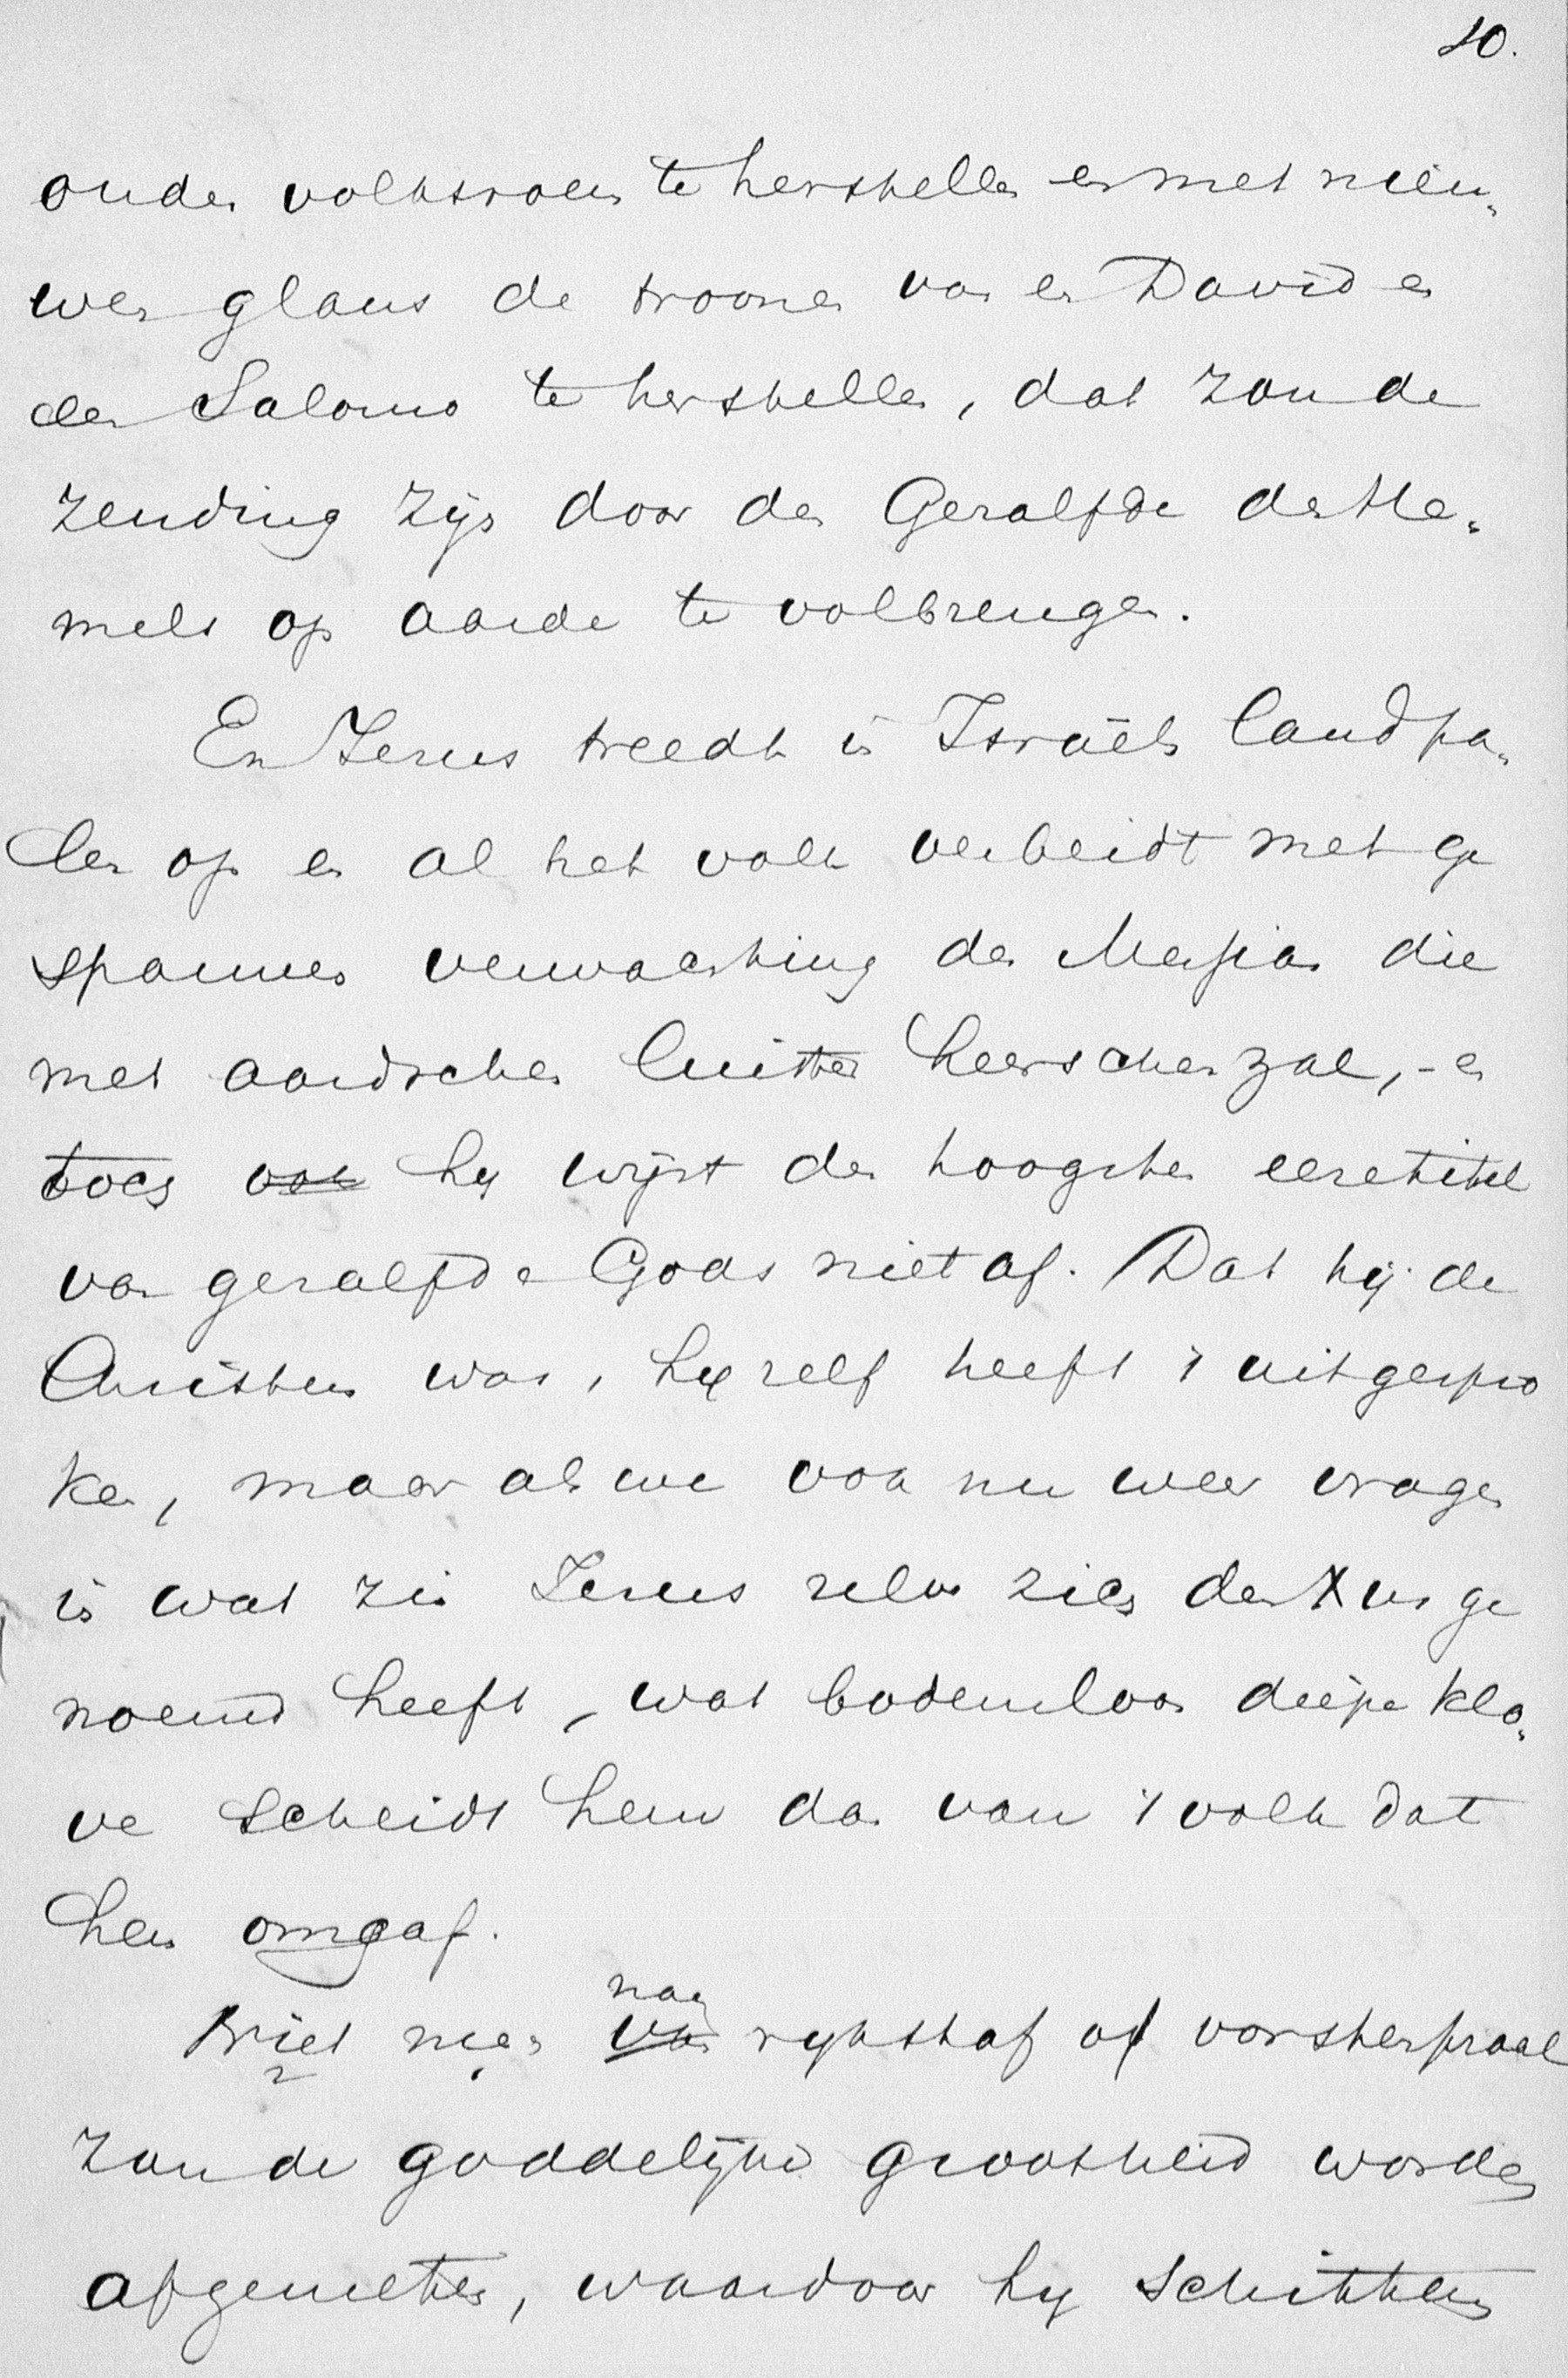 10.
ouden volksroem te herstellen en met nieu-
wen glans de troonen van en David en
den Salomo te herstellen, dat zou de
zending zijn door den Gezalfde des He-
mels op aarde te volbrengen.
En Jezus treedt in Israëls landpa-
len op en al het volk verbeidt met ge
spannen verwachting den Messias die
met aardschen luister heerschen zal, - en
toch ook hij wijst den hoogsten eeretitel
van gezalfde Gods niet af. Dat hij de
Christus was, hij zelf heeft 't uitgespro
ken, maar als we ook nu weer vragen
in wat zin Jezus zelve zich den Xus ge
noemd heeft, wat bodemloos diepe klo-
ve scheidt hem dan van 't volk dat
hem omgaf.
naar
Niet meer van rijksstaf of vorstenpraal
zou de goddelijke grootheid worden
afgemeten, waardoor hij schitteren